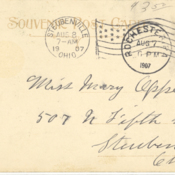 SOUVENIR POST CARD
STEUBENVILLE
AUG 8
7-AM
1907
OHIO
ROCHESTER
AUG 7
1907
Miss Mary
507 N Fifth